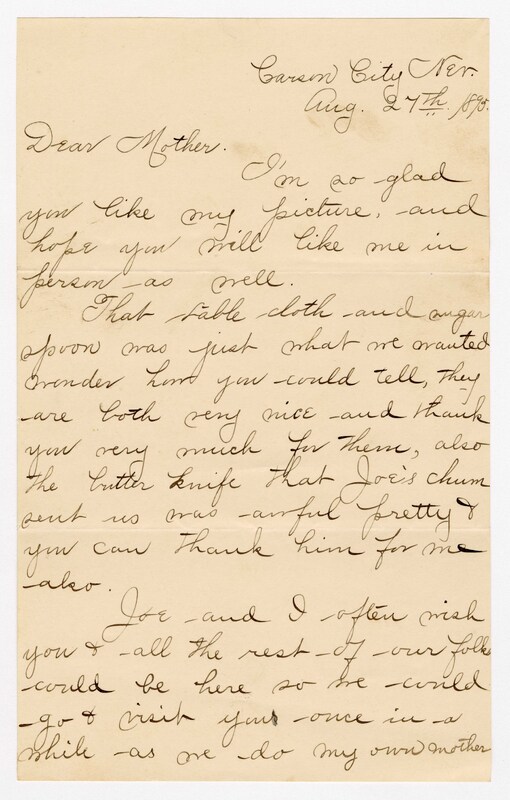 Carson City Nev.
Aug. 27th. 1895.
Dear Mother.
I'm so glad
you like my picture, and
hope you will like me in
person as well.
That table cloth and sugar
spoon was just what we wanted
wonder how you could tell, they
are both very nice and thank
you very much for them, also
the butter knife that Joe's chum
sent us was awful pretty &
you can thank him for me
also.
Joe and I often wish
you & all the rest of our folks
could be here so we could
go & visit you once in a
while as we do my own mother